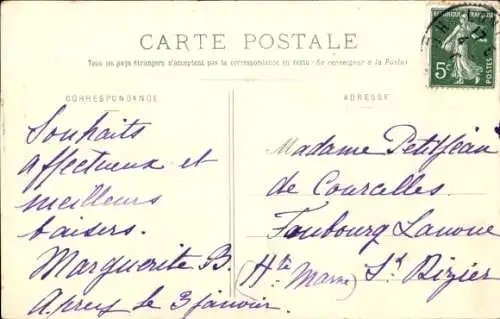 CARTE POSTALE
Tous les pays étrangers n'acceptent pas la correspondance au recto (Se renseigner à la Poste)
CORRESPONDANCE
ADRESSE
REPUBLIQUE FRANÇAISE
5c
POSTES
Souhaits
affectueux et
meilleurs
baisers.
Marguerite B.
le 3 janvier.
Madame Petitjean
de Courcelles
Faubourg Lanoue
(Hte Marne) St Dizier